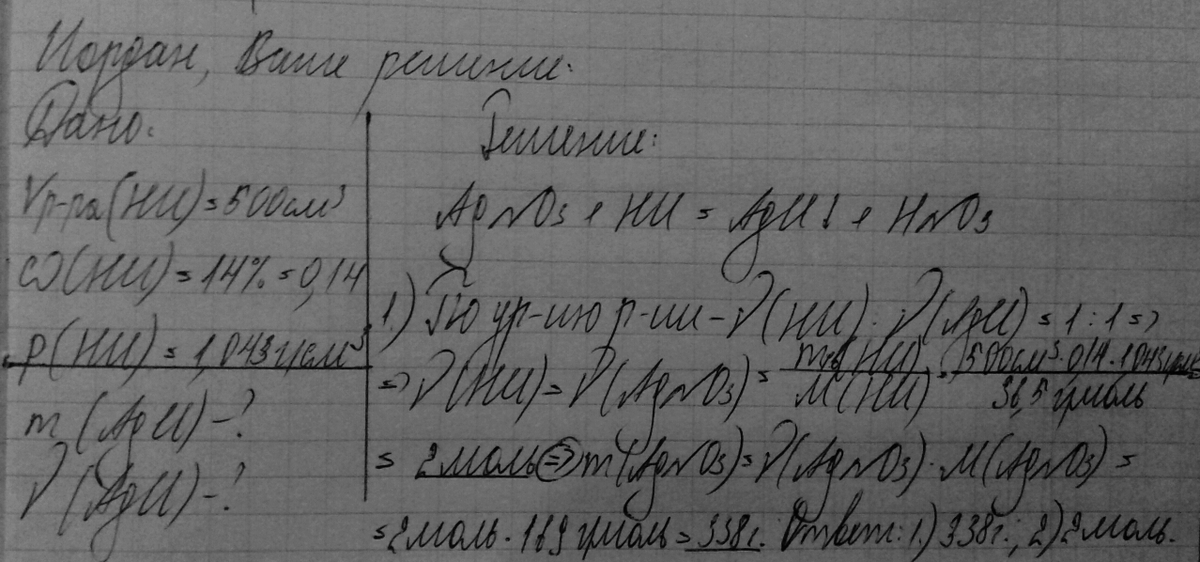 Иордан, Ваше решение:
Дано:
Vр-ра(HCl)=500см³
ω(HCl)=14%=0,14
ρ(HCl)=1,043г/см³
m(AgCl)-?
ν(AgCl)-?
Решение:
AgNO3+HCl=AgCl↓+HNO3
1.) По ур-ию р-ии-ν(HCl):ν(AgCl)=1:1=>
=>ν(HCl)=ν(AgNO3)= (HCl)/M(HCl)=500см³·0,14·1,043г/см³/36,5г/моль=
=2моль=>m(AgNO3)=ν(AgNO3)·M(AgNO3)=
=2моль·169г/моль=338г. Ответ: 1.) 338г.; 2) 2моль.